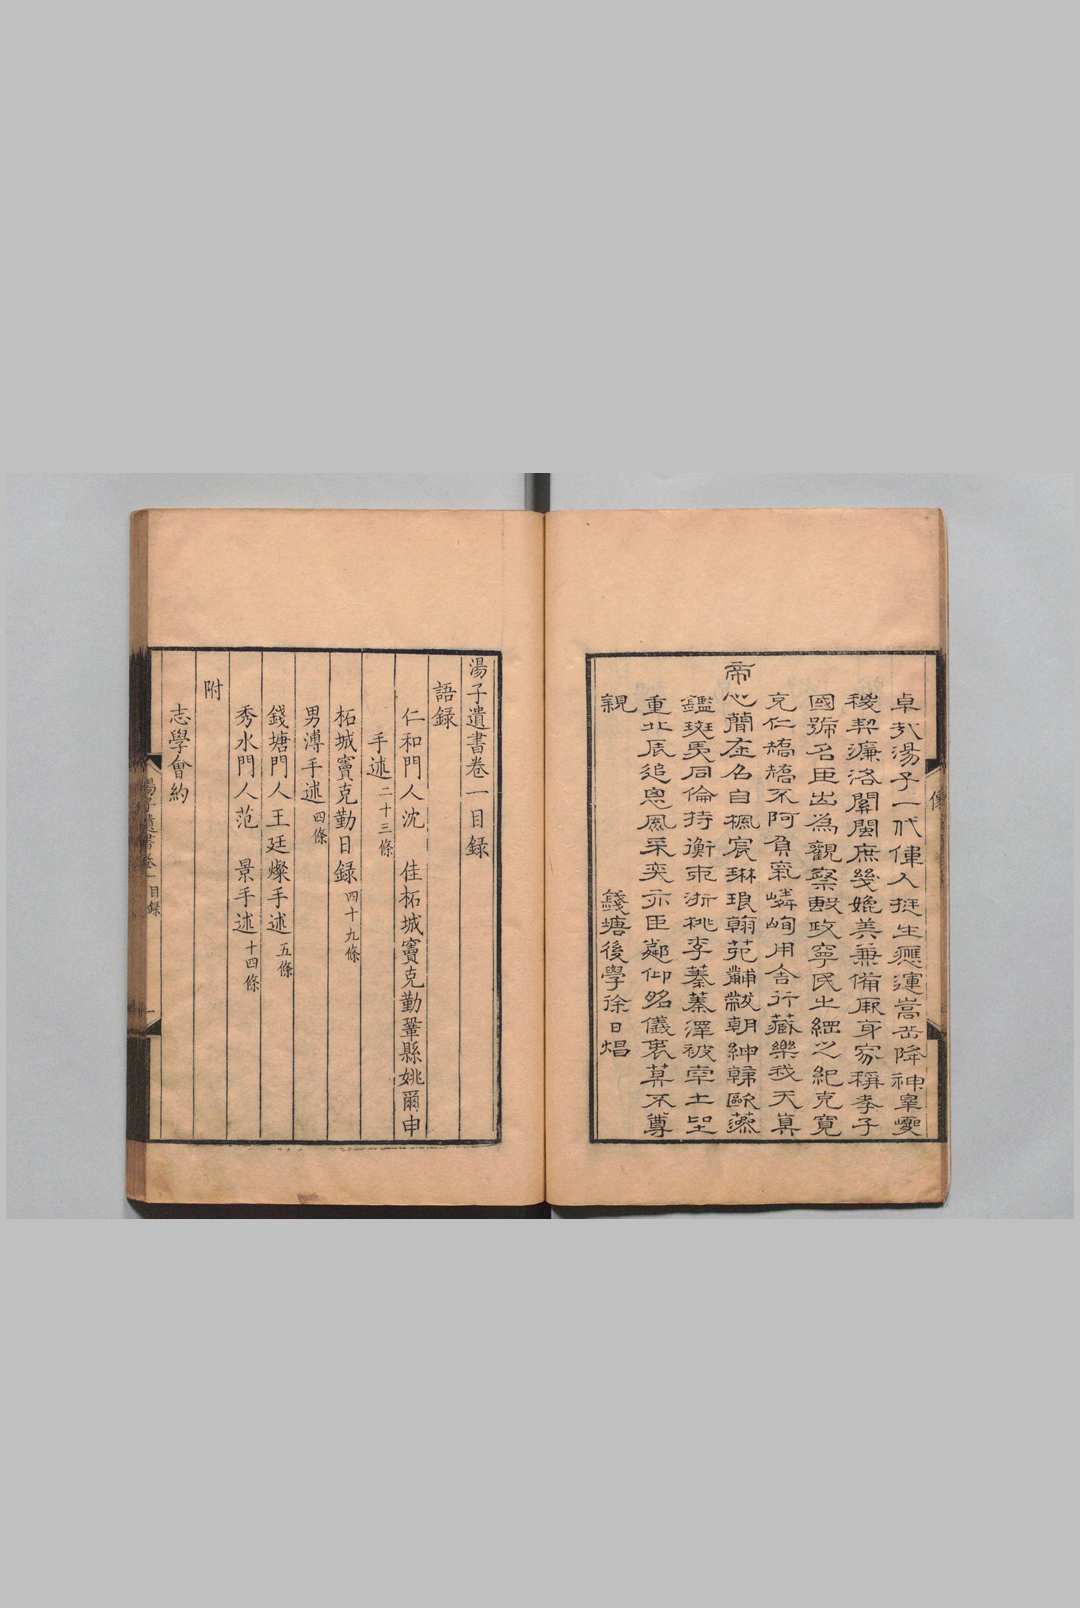 卓哉湯子一代偉人挺生應運嵩岳降神皋夔
稷契濂洛關閩庶幾娩美兼備厥身家稱孝子
國號名臣出為觀察敷政寧民出經之紀克寬
克仁矯矯不阿負氣嶙峋用舍行藏樂我天真
帝心簡在名自楓宸琳琅翰苑黼黻朝紳韓歐蘇
鑑斑馬同倫持衡東浙桃李蓁蓁澤被率土望
重北辰追思風采奕亦臣鄰仰昭儀裏莫不尊
親
錢塘後學徐日焻
像
湯子遺書卷一目録
語録
仁和門人沈 佳柘城竇克勤鞏縣姚爾申
手述二十三條
柘城竇克勤日録四十九條
男溥手述四條
錢塘門人王廷燦手述五條
秀水門人范 景手述十四條
附
志學會約
湯子遺書卷一 目録 一